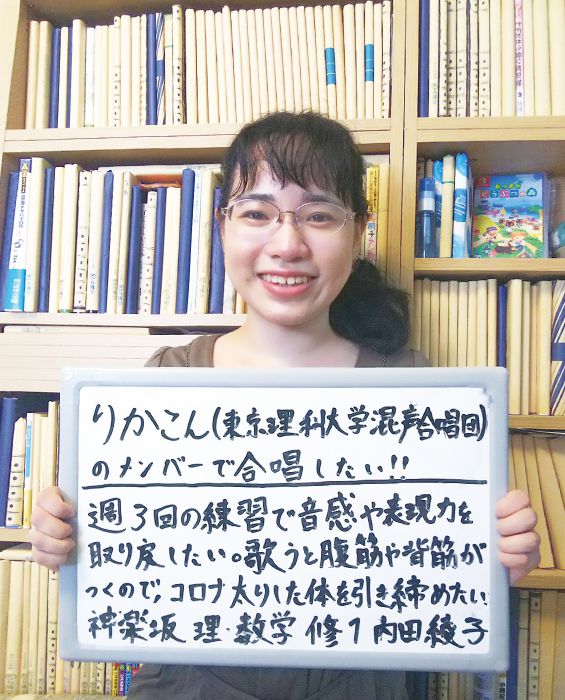 りかこん(東京理科大学混声合唱団)
のメンバーで合唱したい!!
週3回の練習で音感や表現力を
取り戻したい。歌うと腹筋や背筋が
つくので、コロナ太りした体を引き締めたい
神楽坂 理・数学 修1 内田綾子